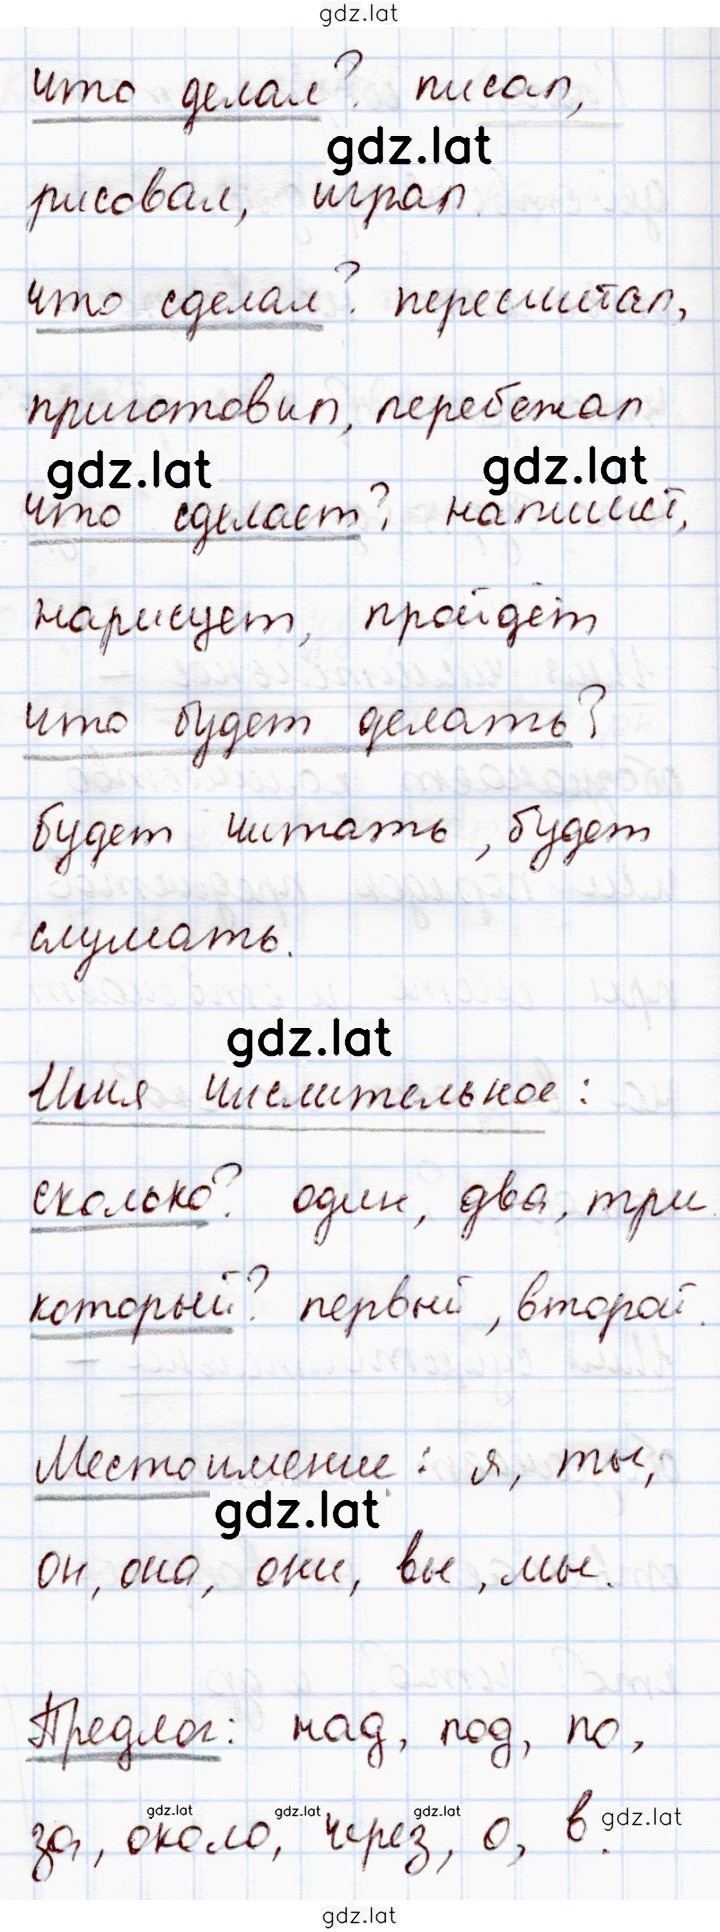 gdz.lat
что делал? писал,
gdz.lat
рисовал, играл
что сделал? пересчитал,
приготовил, перебежал
gdz.lat gdz.lat
что сделает? напишет,
нарисует, пройдёт
что будет делать?
будет читать, будет
слушать.
gdz.lat
Имя числительное:
сколько? один, два, три.
который? первый, второй.
Местоимение: я, ты,
gdz.lat
он, она, они, вы, мы.
Предлог: над, под, по,
gdz.lat gdz.lat gdz.lat gdz.lat
за, около, через, о, в.
gdz.lat